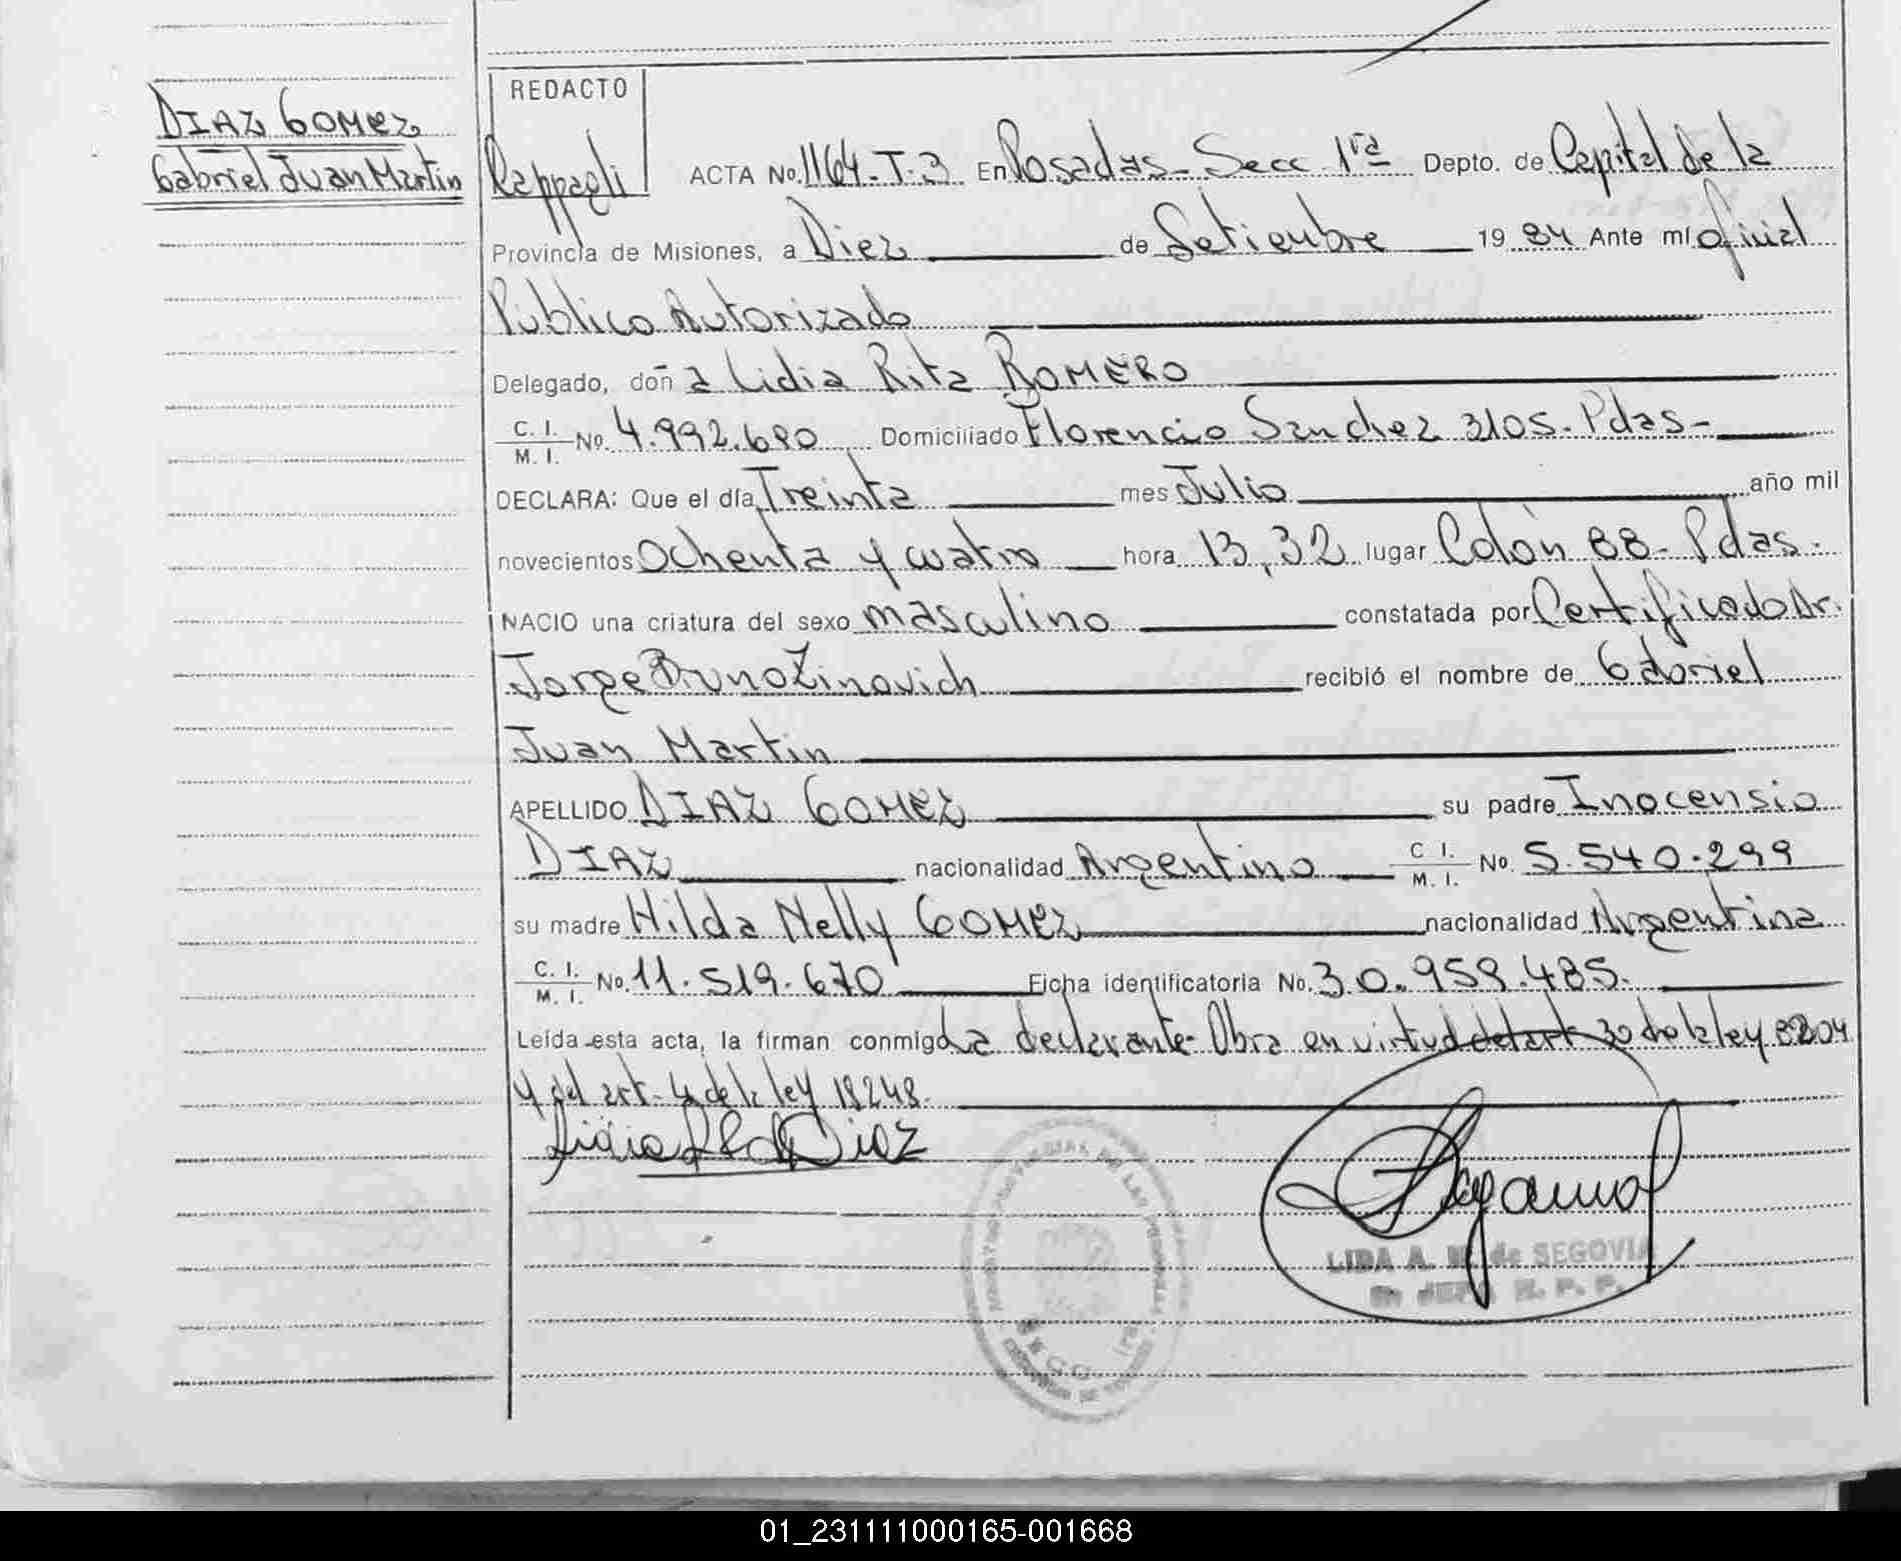 DIAZ GOMEZ
Gabriel Juan Martin
REDACTO
Rappagli
ACTA No. 1164-T-3 En Posadas- Secc 1ra Depto. de Capital de la
Provincia de Misiones, a Diez de Setiembre 1984 Ante mí oficial
Público Autorizado
Delegado, doña Lidia Rita ROMERO
C. I. M. I. No. 4.992.690 Domiciliado Florencio Sanchez 3105. Pdas-
DECLARA: Que el día Treinta mes Julio año mil
novecientos Ochenta y cuatro hora 13,32 lugar Colón 88- Pdas.
NACIO una criatura del sexo masculino constatada por Certificado Dr.
Jorge Bruno Zinovich recibió el nombre de Gabriel
Juan Martin
APELLIDO DIAZ GOMEZ su padre Inocensio
DIAZ nacionalidad Argentino C I. M. I. No. 5.540.299
su madre Hilda Nelly GOMEZ nacionalidad Argentina
C. I. M. I. No. 11.519.670 Ficha identificatoria No. 30.959.485.
Leída esta acta, la firman conmigo La declarante- Obra en virtud del art 30 de la ley 8204
y del art. 4 de la ley 18248.
LIDA A. M. de SEGOVIA
SECC. 1ra
01_231111000165-001668